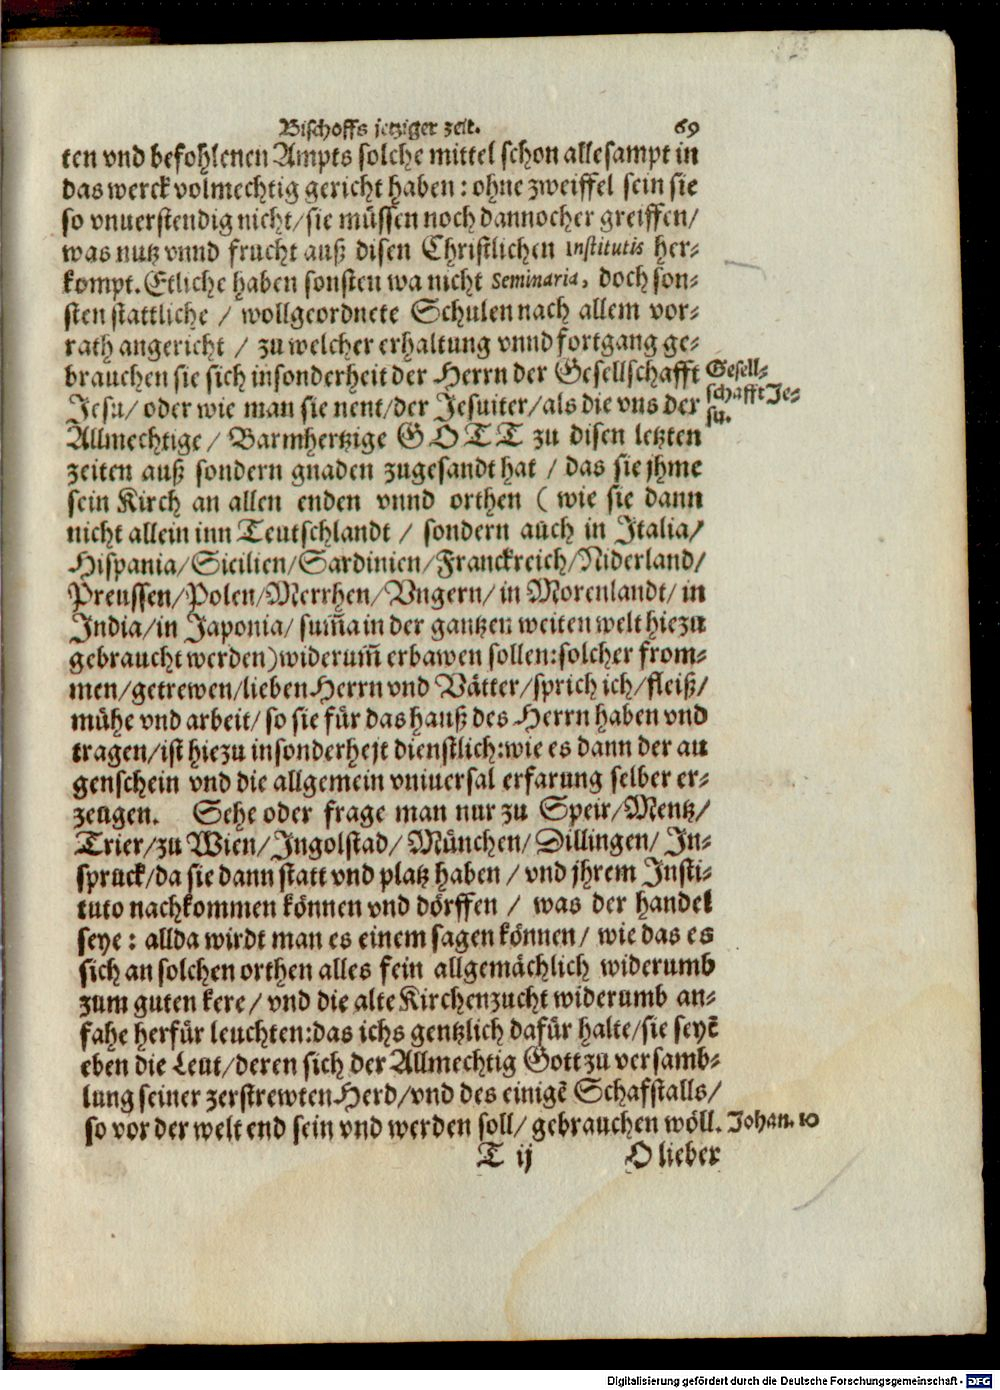 Bischoffs jetziger zeit. 69
ten vnd befohlenen Ampts solche mittel schon allesampt in
das werck volmechtig gericht haben: ohne zweiffel sein sie
so vnuerstendig nicht/sie müssen noch dannocher greiffen/
was nutz vnnd frucht auß disen Christlichen institutis her-
kompt. Etliche haben sonsten wa nicht Seminaria, doch son-
sten stattliche / wollgeordnete Schulen nach allem vor-
rath angericht / zu welcher erhaltung vnnd fortgang ge-
brauchen sie sich insonderheit der Herrn der Gesellschafft
Gesell-
schafft Je-
su.
Jesu/ oder wie man sie nent/der Jesuiter/als die vns der
Allmechtige/ Barmhertzige GOTT zu disen letzten
zeiten auß sondern gnaden zugesandt hat / das sie jhme
sein Kirch an allen enden vnnd orthen ( wie sie dann
nicht allein inn Teutschlandt / sondern auch in Italia/
Hispania/Sicilien/Sardinien/Franckreich/Niderland/
Preussen/Polen/Merrhen/Vngern/ in Morenlandt/ in
India/in Japonia/ sum̃a in der gantzen weiten welt hiezu
gebraucht werden) widerum̃ erbawen sollen:solcher from-
men/getrewen/lieben Herrn vnd Vätter/sprich ich/fleiß/
mühe vnd arbeit/ so sie für das hauß des Herrn haben vnd
tragen/ist hiezu insonderhejt dienstlich:wie es dann der au
genschein vnd die allgemein vniuersal erfarung selber er-
zeugen. Sehe oder frage man nur zu Speir/Mentz/
Trier/zu Wien/Ingolstad/ München/ Dillingen/ In-
spruck/da sie dann statt vnd platz haben / vnd jhrem Insti-
tuto nachkommen können vnd dörffen / was der handel
seye: allda wirdt man es einem sagen können/ wie das es
sich an solchen orthen alles fein allgemächlich widerumb
zum guten kere/ vnd die alte Kirchenzucht widerumb an-
fahe herfür leuchten:das ichs gentzlich dafür halte/sie seyẽ
eben die Leut/deren sich der Allmechtig Gott zu versamb-
lung seiner zerstrewten Herd/vnd des einigẽ Schafstalls/
so vor der welt end sein vnd werden soll/ gebrauchen wöll.
Johan. 10
T ij O lieber
Digitalisierung gefördert durch die Deutsche Forschungsgemeinschaft - DFG